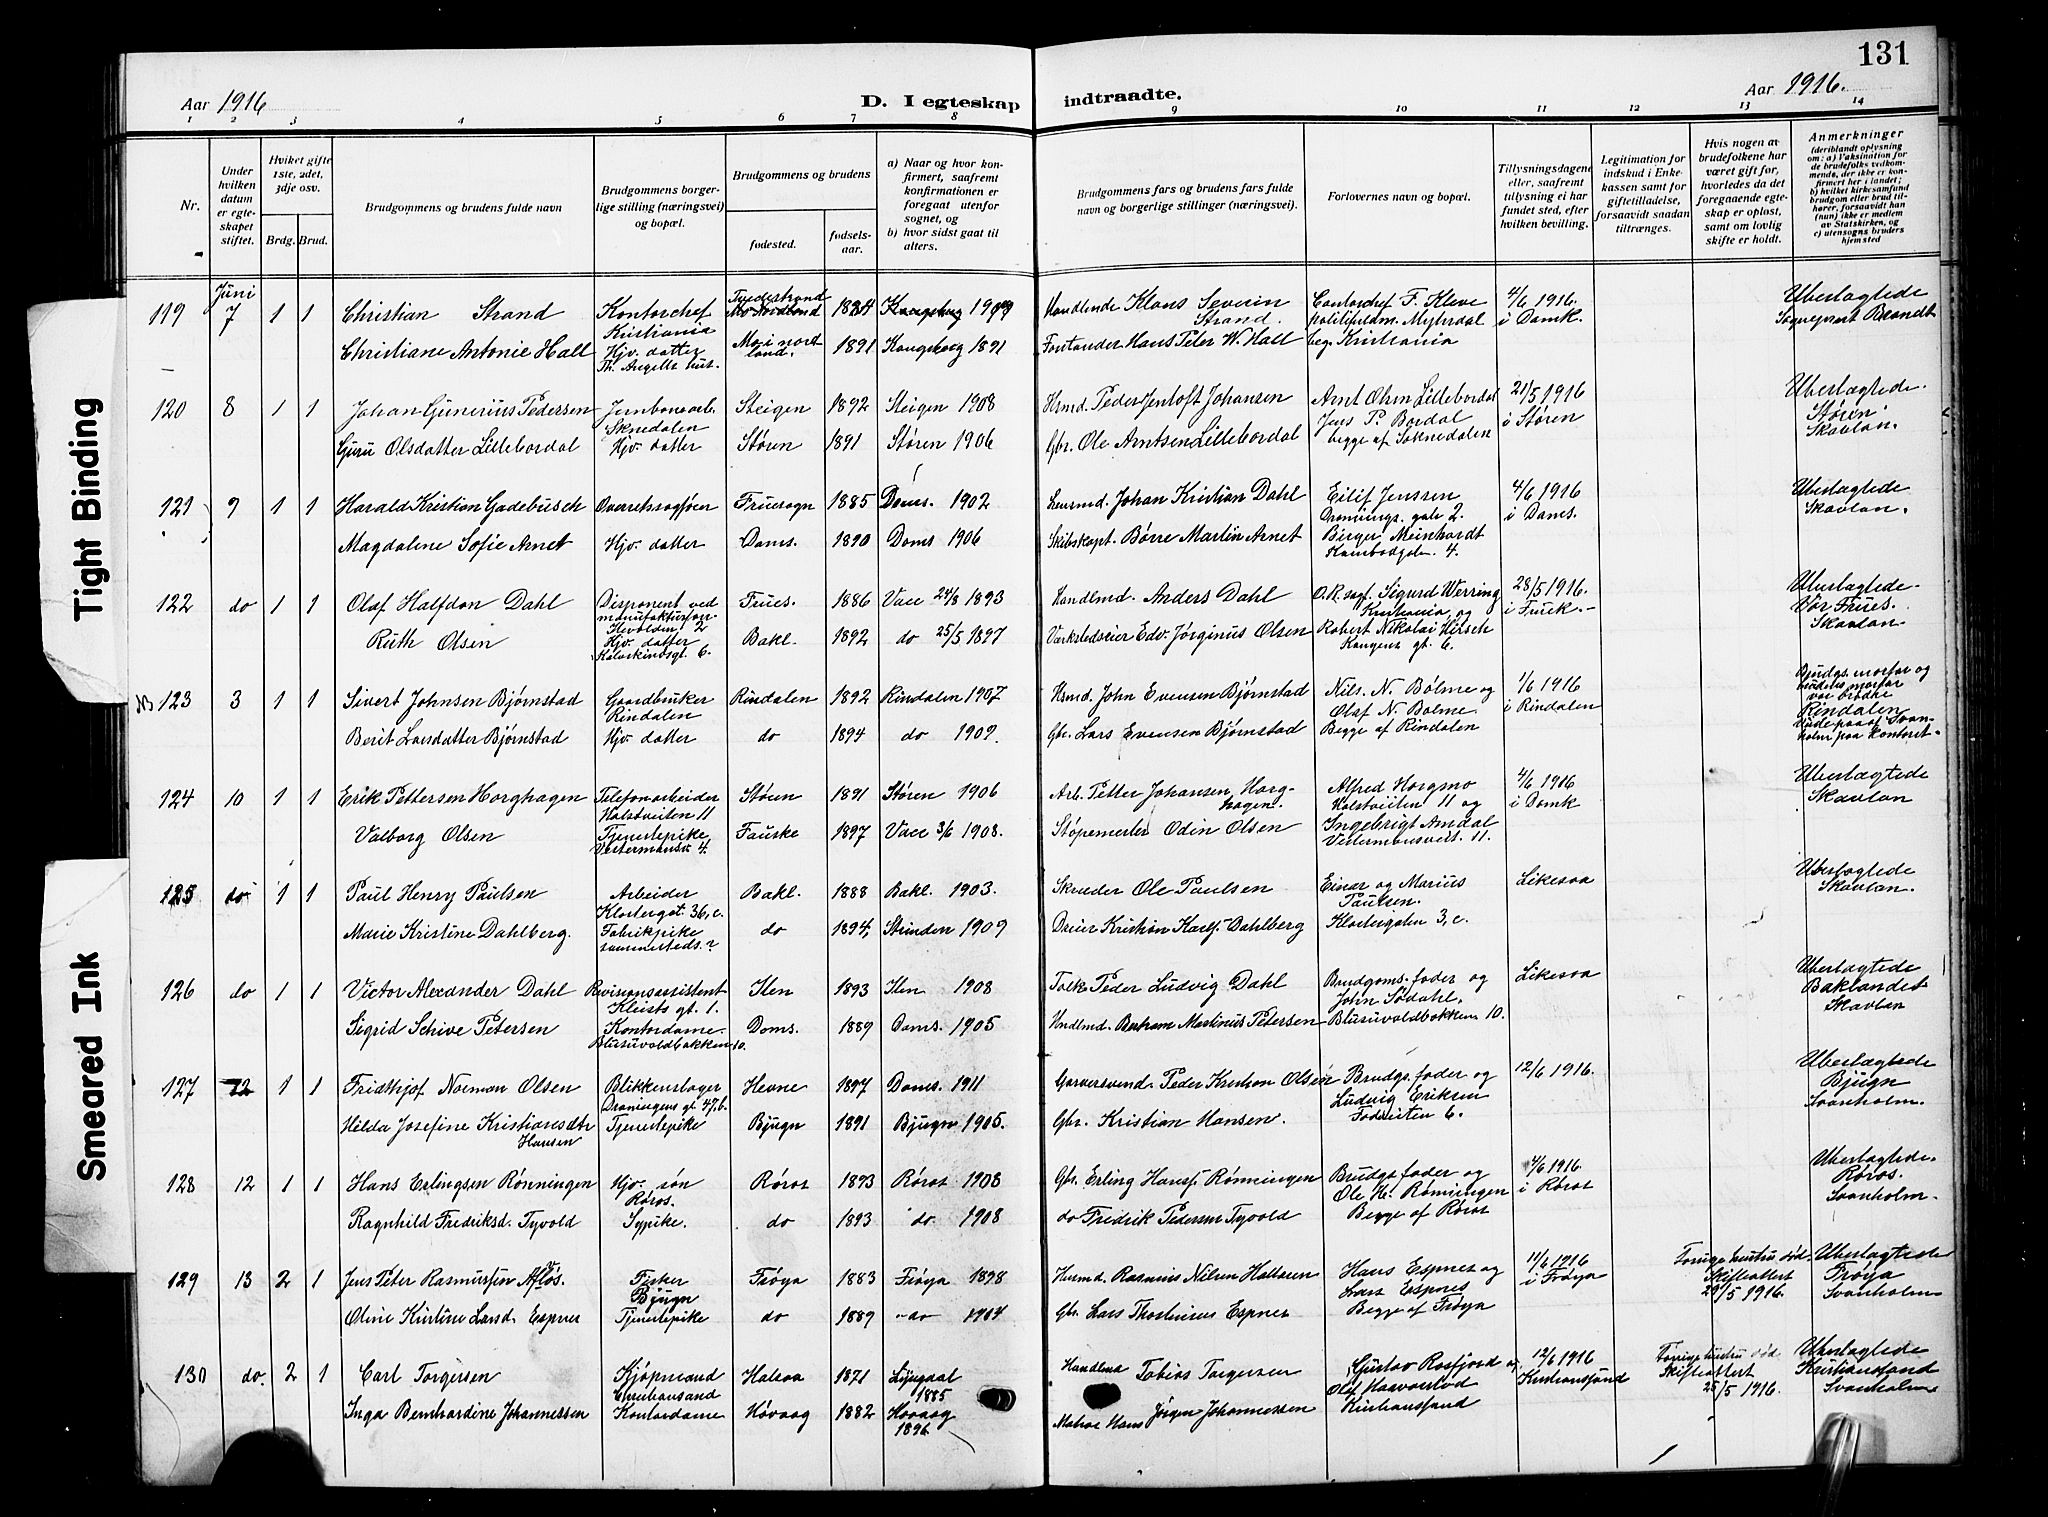 131
Aar 1916
D. I egteskap
indtraadte.
Aar 1916.
1 2 3 4 5 6 7 8 9 10 11 12 13 14
Nr.
Under hvilken datum er egteskapet stiftet.
Hvilket gifte 1ste, 2det, 3dje osv.
Brdg. Brud.
Brudgommens og brudens fulde navn
Brudgommens borgerlige stilling (næringsvei) og bopæl.
Brudgommens og brudens
fødested. fødselsaar.
a) Naar og hvor konfirmert, saafremt konfirmationen er foregaat utenfor sognet, og
b) hvor sidst gaat til alters.
Brudgommens fars og brudens fars fulde navn og borgerlige stillinger (næringsvei).
Forlovernes navn og bopæl.
Tillysningsdagene eller, saafremt tillysning ei har fundet sted, efter hvilken bevilling.
Legitimation for indskud i Enkekassen samt for giftetilladelse, forsaavidt saadan tiltrænges.
Hvis nogen av brudefolkene har været gift før, hvorledes da det foregaaende egteskap er opløst, samt om lovlig skifte er holdt.
Anmerkninger
(deriblandt oplysning om: a) Vaksination for de brudefolks vedkommende, der ikke er konfirmert her i landet; b) hvilket kirkesamfund brudgom eller brud tilhører, forsaavidt han (hun) ikke er medlem av Statskirken, og c) utensogns bruders hjemsted
119 Juni 7 1 1 Christian Strand Kontorchef Kristiania Tvedestrand 1884 Kongsberg 1909 Handlende Klaus Severin Strand. Contorchef F. Kleve politifuldm. Myhrdal 4/6 1916. i Domk. Uberlagtede Sogneprest Brandt
Christiane Antonie Hall Hjv. datter Th. Angells hus. Mo i nordland. 1891 Kongsberg 1891 Hans Peter W. Hall beg. Kristiania
120 8 1 1 Johan Gunerius Pedersen Jernbanearb. Soknedalen Steigen 1892 Steigen 1908 Hsmd. Peder Jentoft Johansen Arnt Olsen Lillebordal 21/5 1916 i Støren Uberlagtede. Støren. Skavlan.
Guru Olsdatter Lillebordal Hjv. datter Støren 1891 Støren 1906 Gbr. Ole Arntsen Lillebordal Jens P. Bordal begge af Soknedalen
121 9 1 1 Harald Kristian Gadebusch Overretssagfører Fruesogn 1885 Doms. 1902 Lensmd. Johan Kristian Dahl Eilif Jenssen Dronnings. gate 2. 4/6 1916 i Doms. Uberlagtede Skavlan.
Magdalene Sofie Arnet Hjv. datter Doms. 1890 Doms 1906 Skibskapt. Børre Martin Arnet Birger Meinhardt 4.
122 do 1 1 Olaf Halfdan Dahl Disponent ved Trues. 1886 Vacc 24/8 1893 Handlmd. Anders Dahl O.R. sagf. Sigurd Werring Kristiania og 28/5 1916. i Fruek. Uberlagtede Vor Frues. Skavlan.
Ruth Olsen Hjv. datter Kalvskindsgt. 6. Bakl. 1892 do 25/5 1897 Værkstedseier Edv. Jørginus Olsen Robert Nikolai Hirsch Kongens gt. 6.
NB 123 3 1 1 Sivert Johnsen Bjørnstad Gaardbruker Rindalen Rindalen 1892 Rindalen 1907 Hsmd. John Evensen Bjørnstad Nils. N. Bolme og 1/6 1916 i Rindalen Brudgs. morfar og brudens morfar var brødre Rindalen
Berit Larsdatter Bjørnstad Hjv. datter do 1894 do 1909. Gbr. Lars Evensen Bjørnstad Olaf N. Bolme Begge af Rindalen paa kontoret.
124 10 1 1 Erik Pettersen Horghagen Telefonarbeider Holstveiten 11 Støren 1891 Støren 1906 Arb. Petter Johansen Horghagen. Alfred Horgmo Holstveiten 11 og 4/6 1916 i Domk Uberlagtede Skavlan
Valborg Olsen Tjenestepike 4. Fauske 1897 Vacc 3/6 1908. Støpemester Odin Olsen Ingebrigt Amdal 11.
125 do 1 1 Paul Henry Paulsen Arbeider Klostergat. 36, c. Bakl. 1888 Bakl. 1903. Skræder Ole Paulsen Einar og Marius Paulsen. Likesaa Uberlagtede Skavlan.
Marie Kristine Dahlberg. Fabrikpike sammesteds. do 1894, Strinden 1909 Dreier Kristian Karlf. Dahlberg Klostergaten 3, c.
126 do 1 1 Victor Alexander Dahl Revisionsassistent Kleists gt. 1. Ilen 1893 Ilen 1908 Tolk Peder Ludvig Dahl Brudgoms. fader og Likesaa Uberlagtede Baklandet Skavlan
Sigrid Schive Petersen Kontordame. Blusuvoldbakken 10. Doms. 1889 Doms. 1905 Hndlmd. Bertram Martinus Petersen John Sødahl. Blusuvoldbakken 10.
127 12 1 1 Fridthjof Norman Olsen Blikkenslager Dronningens gt. 47, b. Hevne 1897 Doms. 1911 Garversvend. Peder Kristian Olsen Brudgs. fader og 12/6 1916. Uberlagtede Bjugn Svanholm.
Hilda Josefine Kristiansdtr Hansen Tjenestepike Bjugn 1891 Bjugn 1905. Gbr. Kristian Hansen. Ludvig Eriksen 6.
128 12 1 1 Hans Erlingsen Rønningen Hjv. søn Røros. Røros 1893 Røros 1908 Gbr. Erling Hansf. Rønningen Brudgs. fader og 4/6 1916. i Røros Uberlagtede. Røros. Svanholm.
Ragnhild Fredriksd. Tyvold Sypike. do 1893 do 1908 do Fredrik Pedersen Tyvold Ole H. Rønningen Begge af Røros
129 13 2 1 Jens Peter Rasmussen Fisker Bjugn Frøya 1883 Frøya 1898 Husmd. Rasmus Nilsen Hallaren Hans Espnes og 11/6 1916 i Frøya Forrige hustru død. Skifteattest 29/5 1916. Uberlagtede Frøya Svanholm
Oline Kristine Larsd. Espnes Tjenestepike do 1889 do 1904 Gbr. Lars Thostinius Espnes Lars Espnes Begge af Frøya
130 do. 2 1 Carl Torgersen Kjøpmand Christiansand Halsaa 1871 Lyngdal 1885 Handlmd Tobias Torgersen Gustav Rosfjord og 12/6 1916 Kristiansand Forrige hustru død Skifteattest 25/5 1916. Uberlagtede Kristianssand Svanholm
Inga Bernhardine Johannessen Kontordame Høvaag 1882 Hovaag 1896 Matros Hans Jørgen Johannessen Olaf Haavorstad Kristianssand
Tight Binding
Smeared Ink